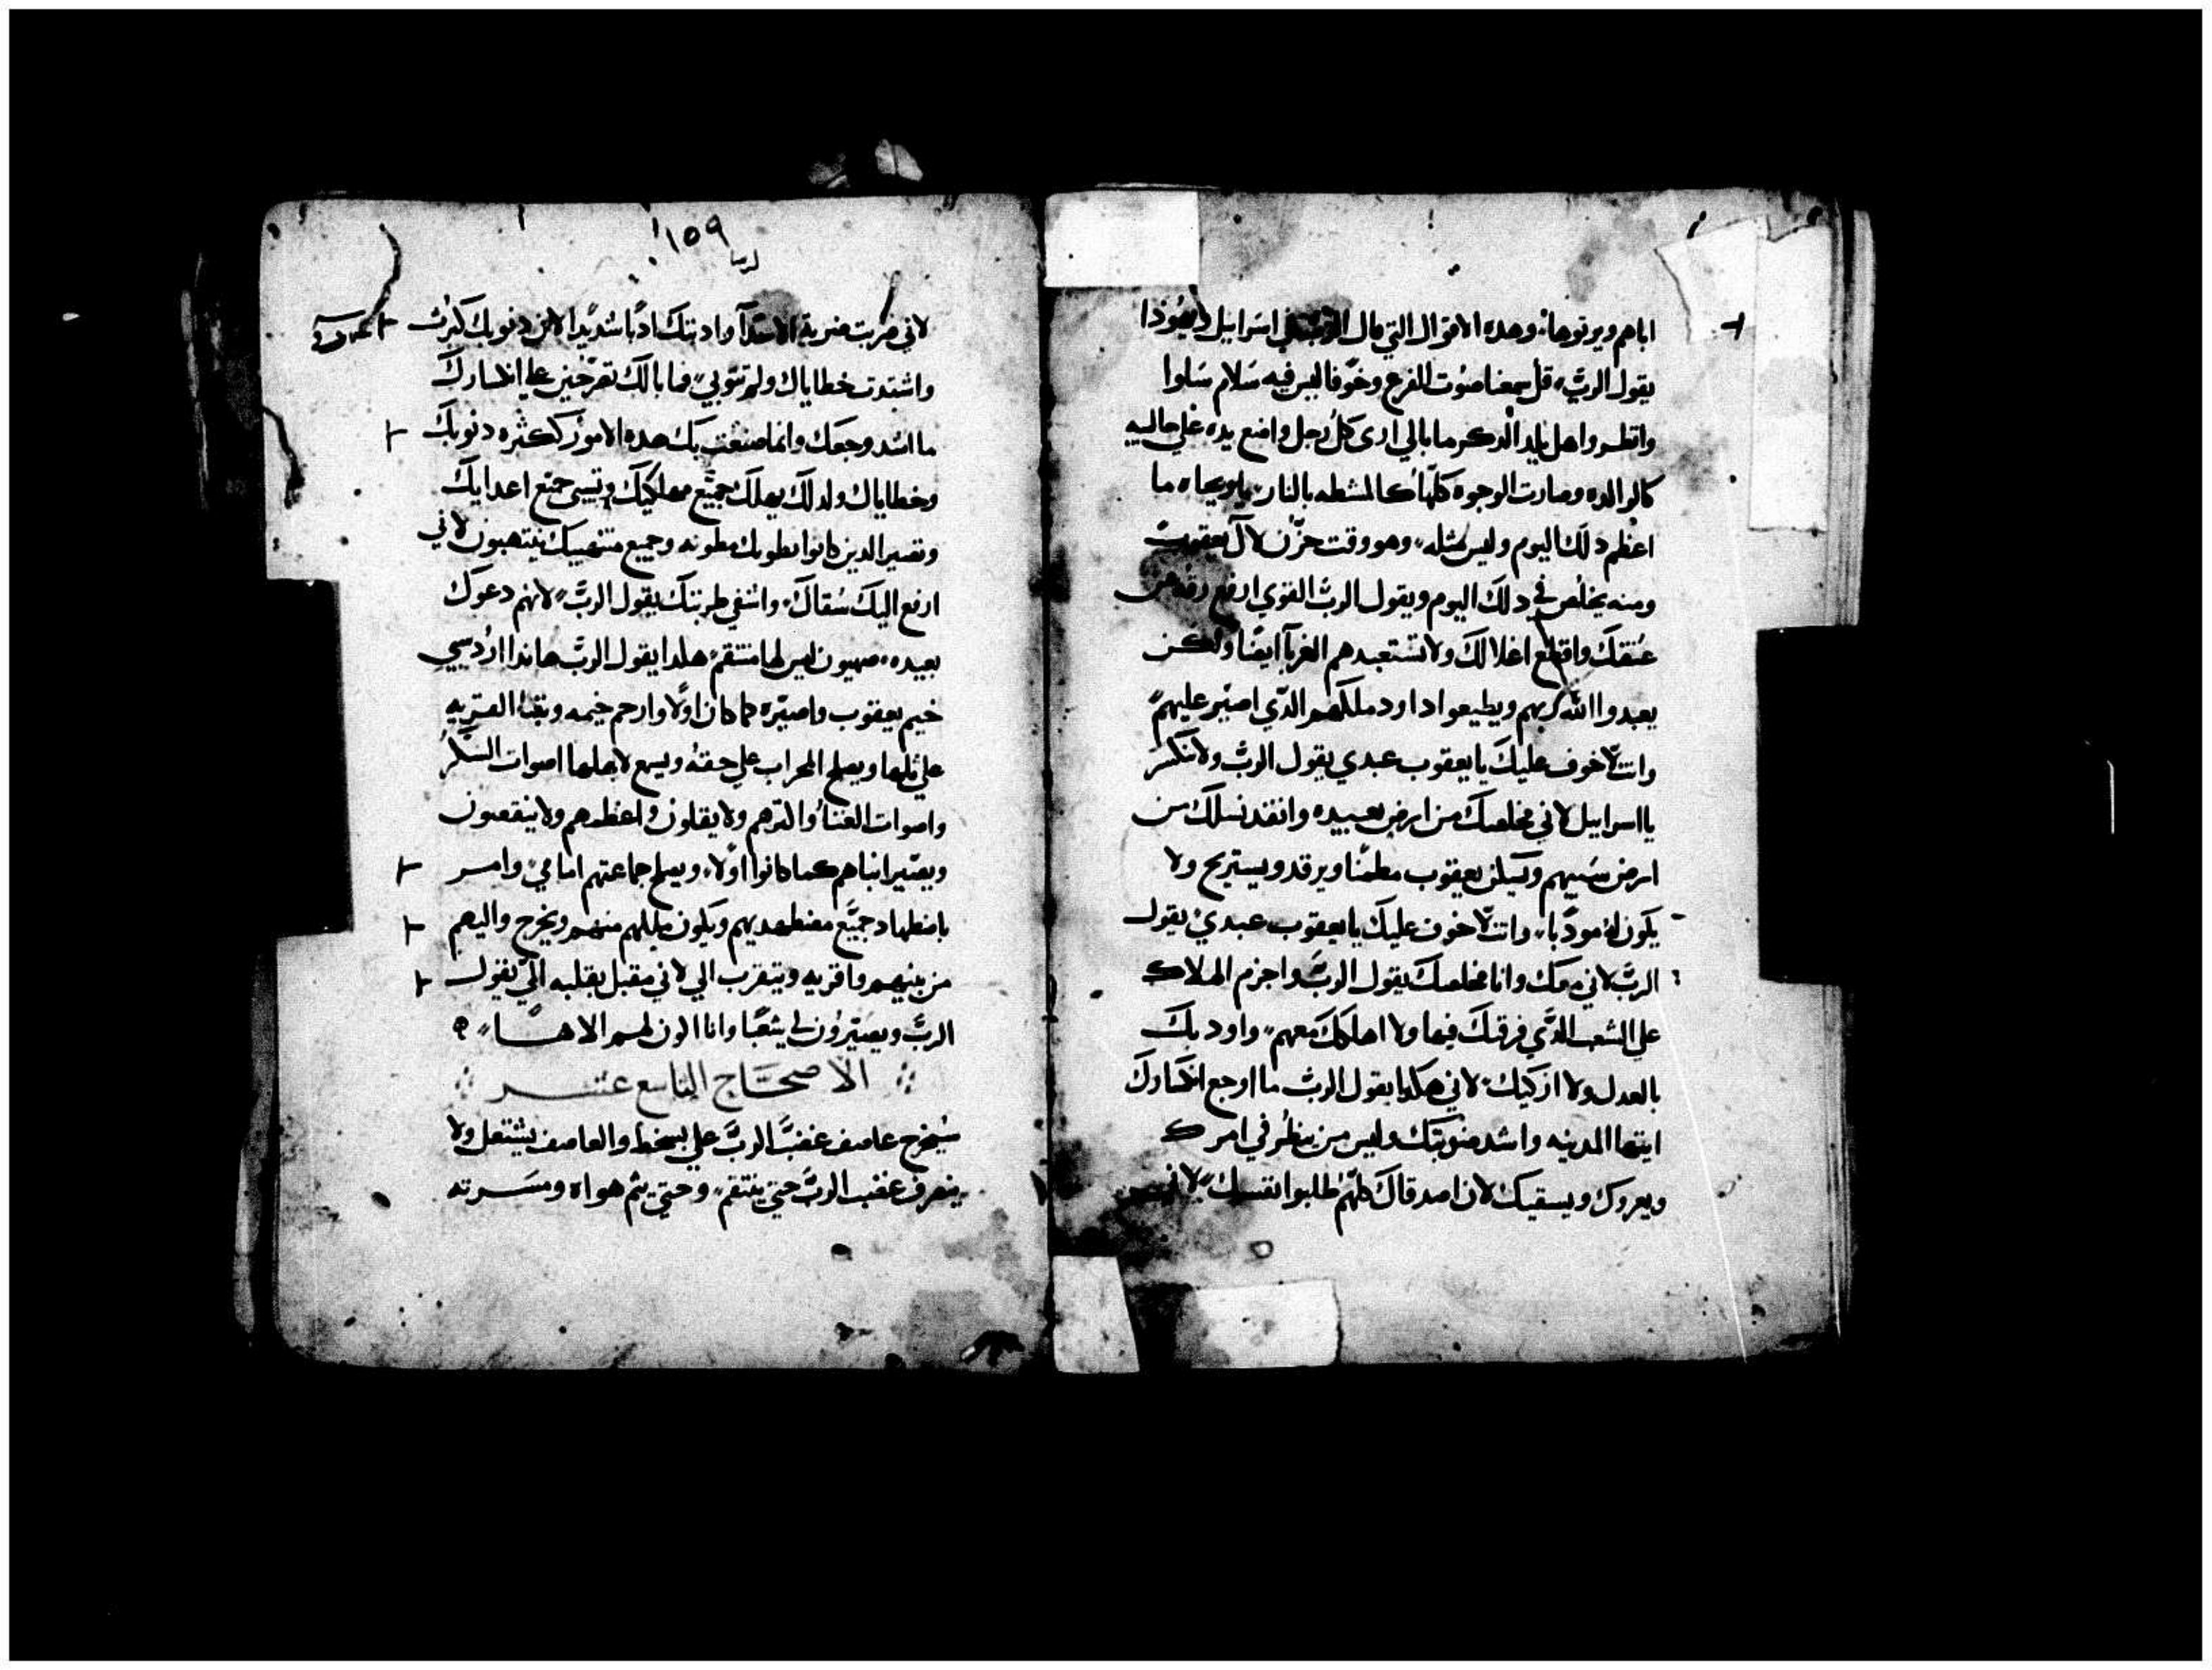 اباهم ويرثوها وهده الاقوال التي قال الرب في اسراييل ويهوذا
يقول الربّ قل سمعنا صوت الفزع وخوفا ليس فيه سلام سلوا
وانظروا هل يلد الدكر ما بالي ارى كل رجل واضع يده علي حاليه
كالوالده وصارت الوجوه كلها كالمشطه بالنار يا ويحاه ما
اعظم دلك اليوم وليس مثله وهو وقت حزن لال يعقوب
ومنه يخلص في دلك اليوم ويقول الربّ القوي ارفع من
عنقك واقطع اغلالك ولا تستعبدهم الغربا ايضا ولكن
يعبدوا الله ربهم ويطيعوا داود ملكهم الدي اصير عليهم
وانت لا خوف عليك يا يعقوب عبدي يقول الربّ ولا تنكسر
يا اسراييل لاني مخلصك من ارض بعيده وانقد نسلك من
ارض سبيهم ويسكن يعقوب مطمنا ويرقد ويستريح ولا
يكون له مودبا وانت لا خوف عليك يا يعقوب عبدي يقول
الربّ لاني معك وانا مخلصك يقول الربّ واجزم الهلاك
علي الشعب الدي فرقتك فيها ولا اهلكك معهم واودبك
بالعدل ولا ازكيك لاني هكدا يقول الربّ ما اوجع انكسارك
ايتها المدينه واشد ضربتك وليس من ينظر في امرك
ويعزوك ويسقيك لان اصدقاك كلهم طلبوا نفسك
١٥٩
لاني ضربت ضربة الاعدا وادبتك ادبا شديدا لان دنوبك كثرت
واشتدت خطاياك ولم تتوبي فما بالك تصرخين علي انكسارك
ما اشد وجعك وانما صنعت بك هده الامور لكثره دنوبك
وخطاياك ولدلك يهلك جميع مهلكيك وتسبى جميع اعدايك
وتصير الدين كانوا يطوبك مطونه وجميع منتهبيك ينتهبون لاني
ارفع اليك شفاك واشفي ضربتك يقول الربّ لانهم دعوك
بعيده صهيون ليس لها منتقم هكدا يقول الربّ هاندا ارد سبي
خيم يعقوب واصيره كما كان اولا وارحم خيمه وتبنا القريه
علي تلها ويصلح المحراب علي حقه ويسمع لاهلها اصوات الشكر
واصوات الغنا والترهم ولا يقلون واعظمهم ولا ينقصون
ويصير ابناهم كما كانوا اولا ويصلح جماعتهم امامي وامر
باضطهاد جميع مضطهديهم ويكون ملكهم منهم ويخرج واليهم
من بينهم واقربه ويتقرب الي لاني مقبل بقلبه الي يقول
الربّ ويصيرون لي شعبا وانا اكون لهم الاها
الاصحاح التاسع عشر
سيخرج عاصف غضب الربّ علي بسخط والعاصف يشتعل ولا
ينصرف غضب الربّ حتي ينتقم وحتي يتم هواه ومسرته